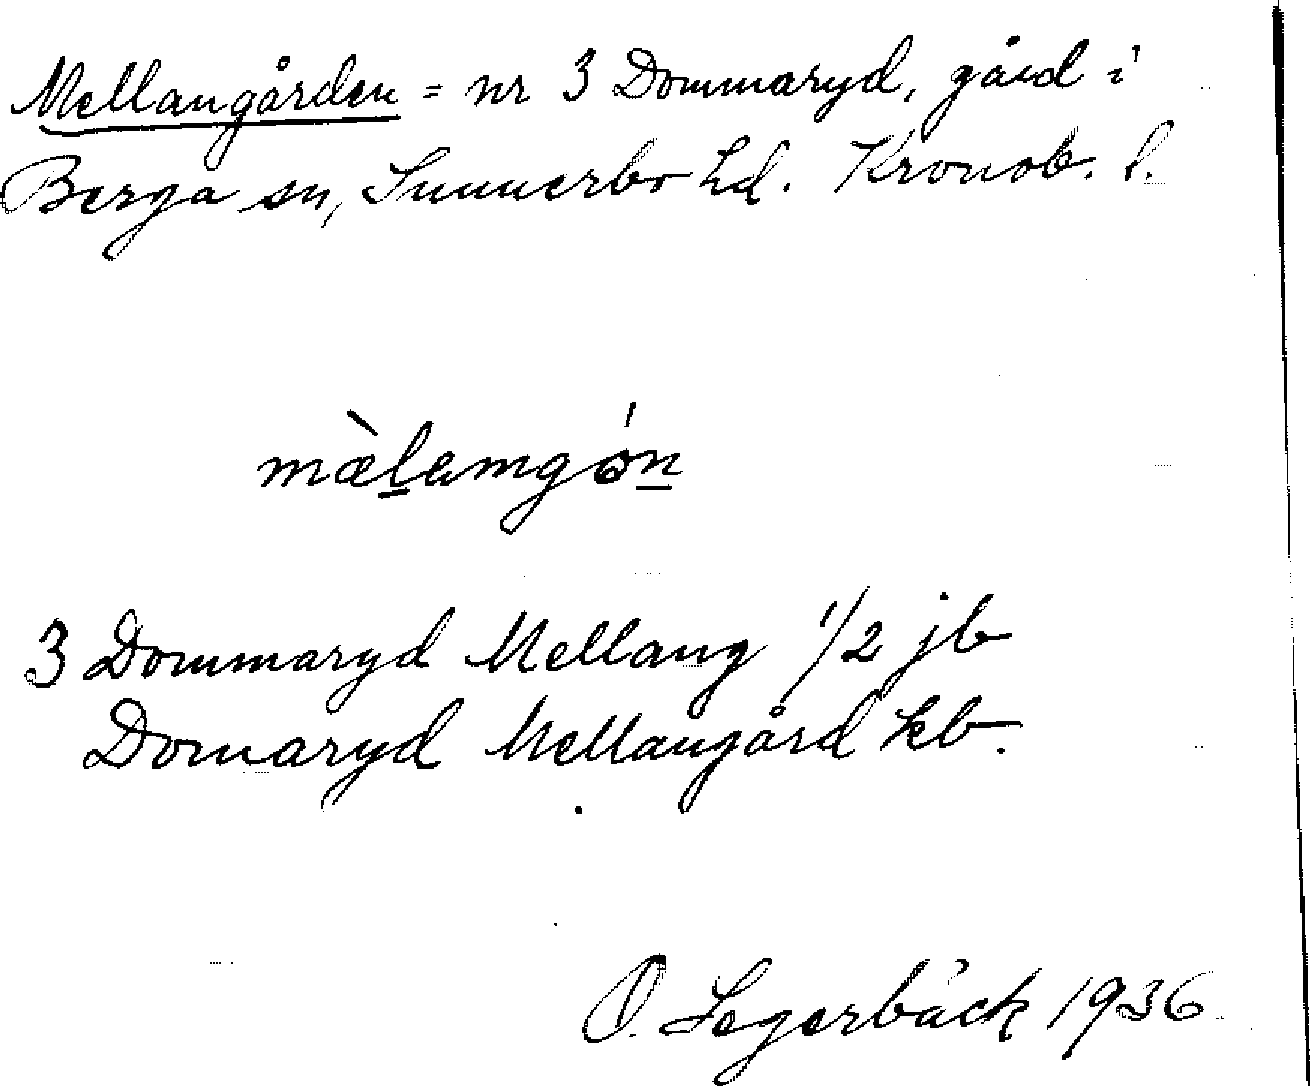 Mellangården = nr 3 Dommaryd, gård i
Berga sn, Sunnerbo hd. Kronob. l.
mæ̀l̲amgón̲
3 Dommaryd Mellang 1/2 jb
Domaryd Mellangård kb.
O. Segerbäck 1936